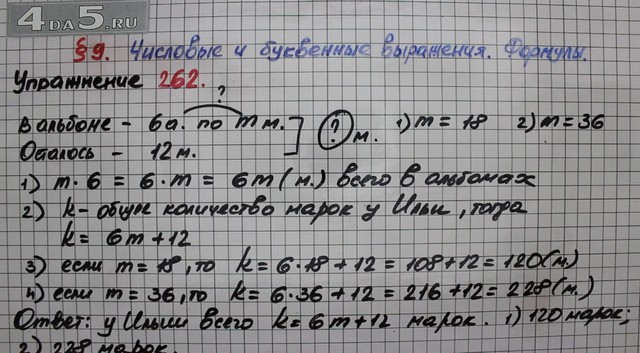 4DA5.RU
§9. Числовые и буквенные выражения. Формулы.
Упражнение 262.
?
В альбоме - 6а. по m м. ? м. 1) m = 18 2) m = 36
Осталось - 12 м.
1) m · 6 = 6 · m = 6m (м.) всего в альбомах
2) k - общее количество марок у Ильи, тогда
k = 6m + 12
3) если m = 18, то k = 6 · 18 + 12 = 108 + 12 = 120 (м.)
4) если m = 36, то k = 6 · 36 + 12 = 216 + 12 = 228 (м.)
Ответ: у Ильи всего k = 6m + 12 марок. 1) 120 марок;
2) 228 марок.